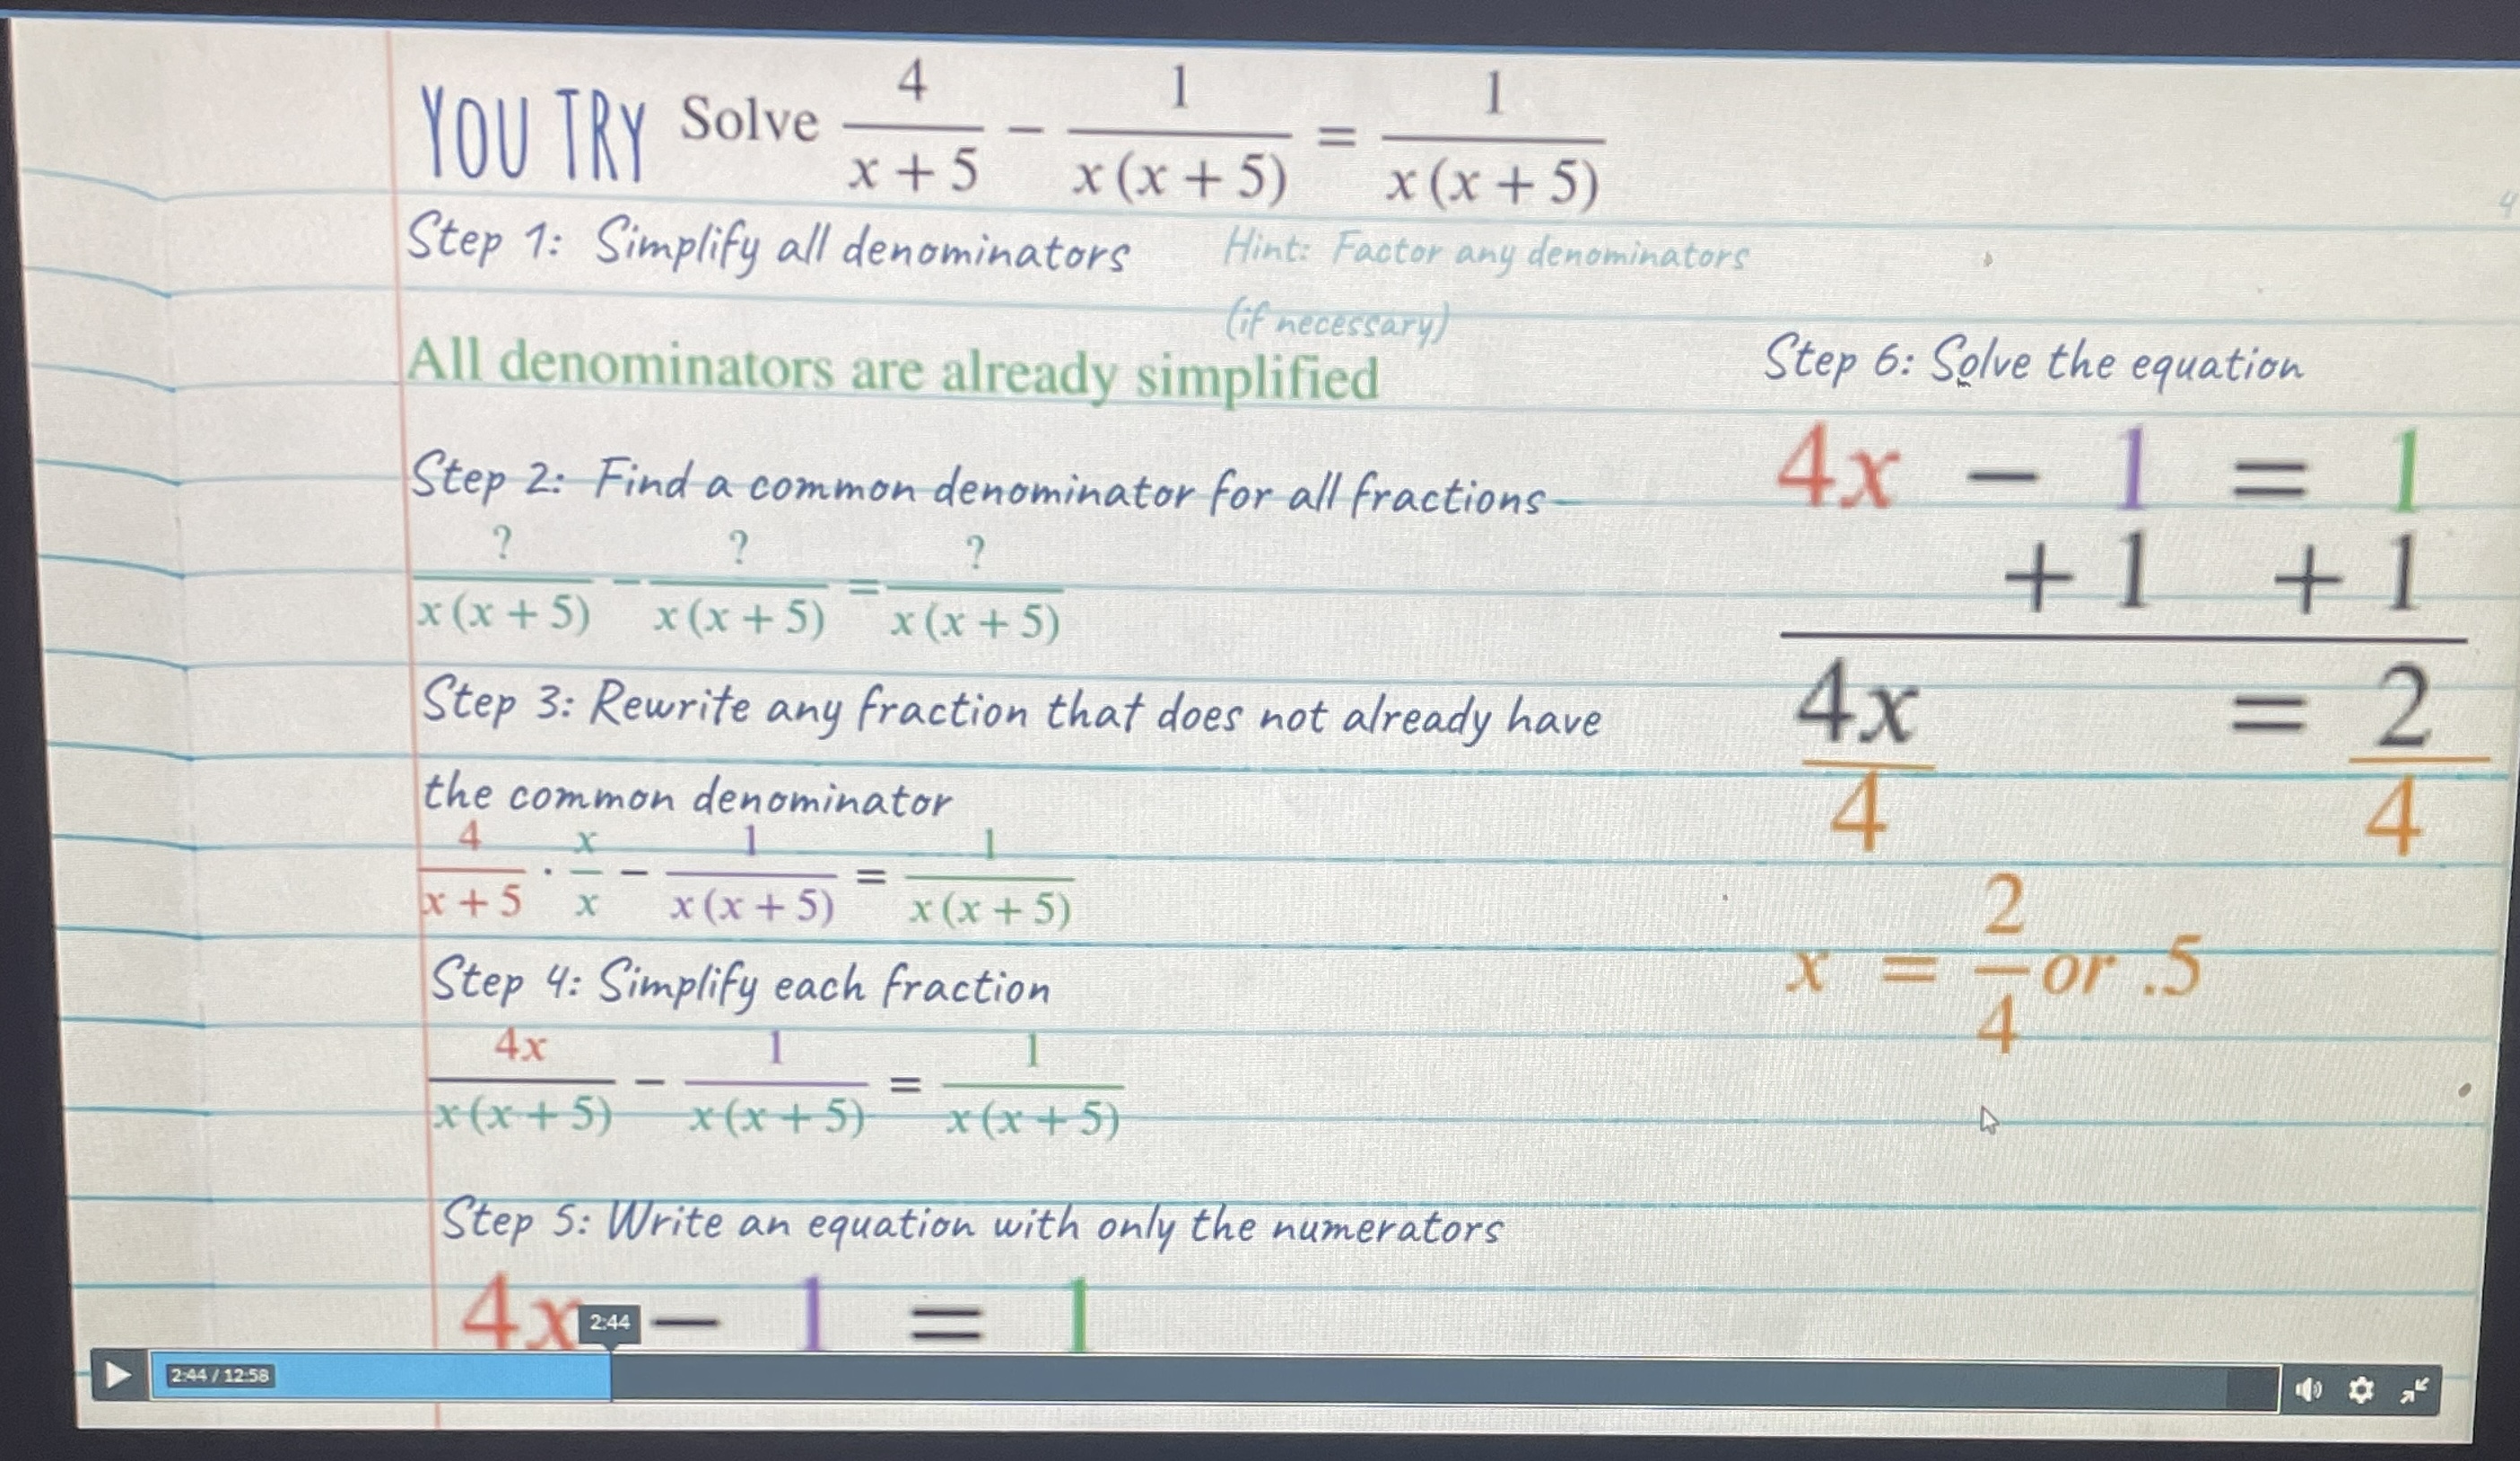 YOU TRY Solve 4/(x + 5) − 1/(x(x + 5)) = 1/(x(x + 5))
Step 1: Simplify all denominators
Hint: Factor any denominators
(if necessary)
All denominators are already simplified
Step 2: Find a common denominator for all fractions
?/(x(x + 5)) − ?/(x(x + 5)) = ?/(x(x + 5))
Step 3: Rewrite any fraction that does not already have
the common denominator
4/(x + 5) · x/x − 1/(x(x + 5)) = 1/(x(x + 5))
Step 4: Simplify each fraction
4x/(x(x + 5)) − 1/(x(x + 5)) = 1/(x(x + 5))
Step 5: Write an equation with only the numerators
4x − 1 = 1
Step 6: Solve the equation
4x − 1 = 1
+ 1 + 1
4x = 2
4 4
x = 2/4 or .5
4
2:44
2:44 / 12:58